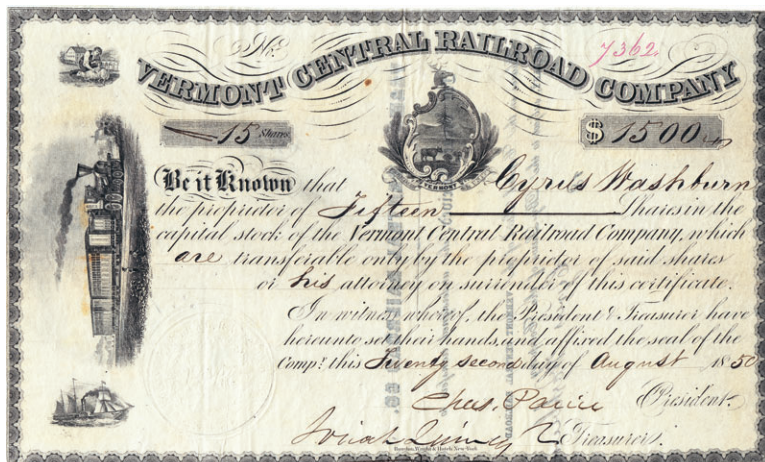 No. 7362.
VERMONT CENTRAL RAILROAD COMPANY
15 Shares $ 1500
VERMONT
Be it Known that Cyrus Washburn
the proprietor of Fifteen Shares in the
capital stock of the Vermont Central Railroad Company, which
are transferable only by the proprietor of said shares
or his attorney on surrender of this certificate.
In witness whereof, the President & Treasurer have
hereunto set their hands, and affixed the seal of the
Compy. this Twenty second day of August 1850
Chas. Paine President.
Josiah Quincy Jr Treasurer.